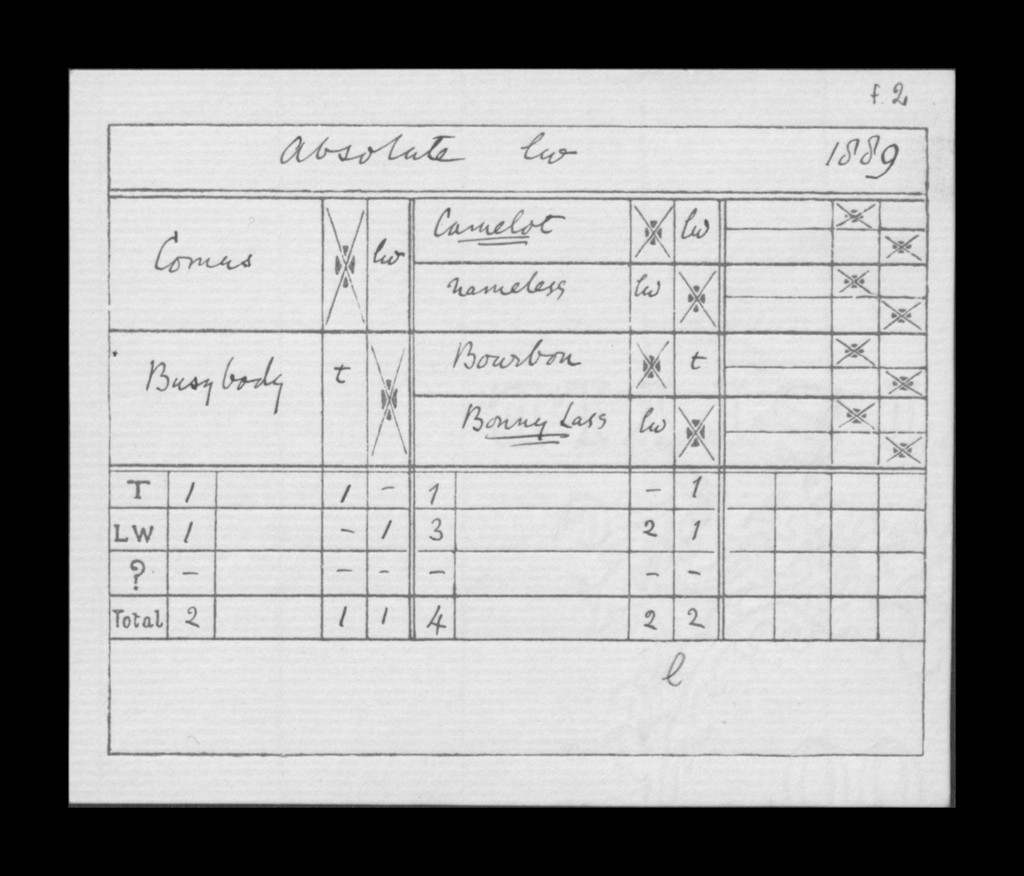 f. 2
Absolute lw 1889
Comus lw
Camelot lw
nameless lw
Busybody t
Bourbon t
Bonny Lass lw
T 1 1 - 1 - 1
LW 1 - 1 3 2 1
? - - - - - -
Total 2 1 1 4 2 2
l